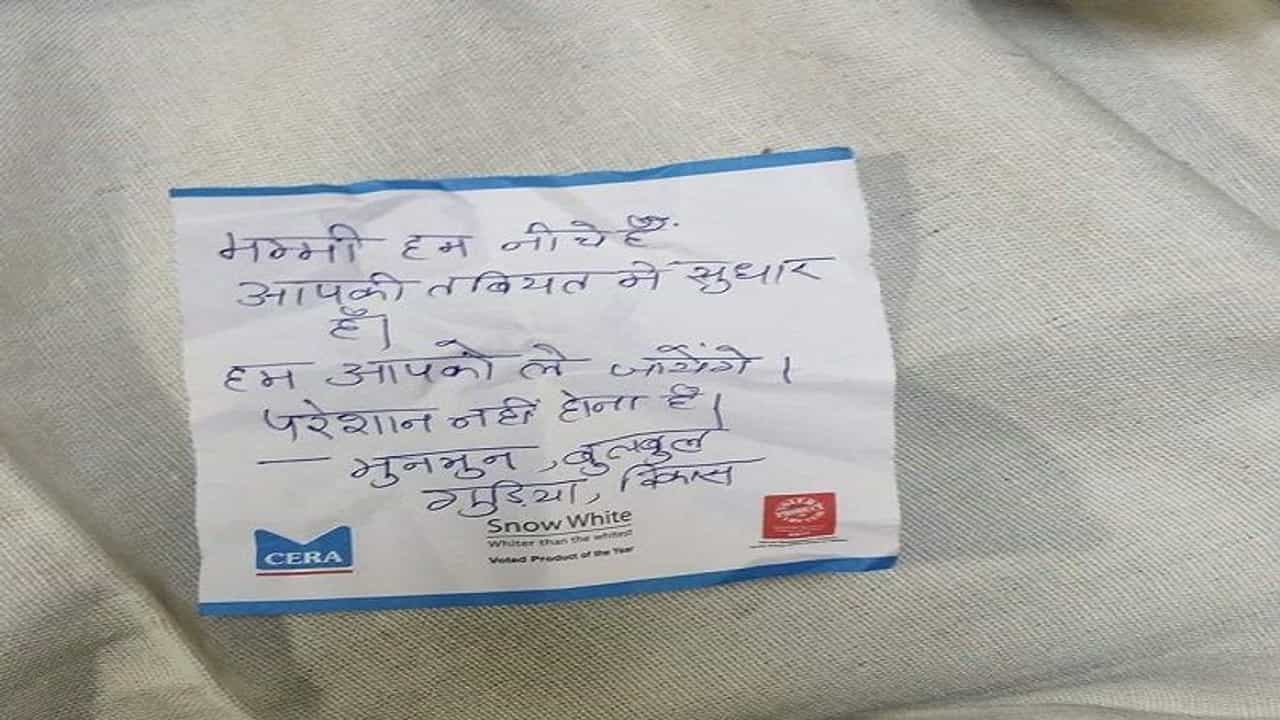 मम्मी हम नीचे हैं
आपकी तबियत मे सुधार
है।
हम आपको ले जायेंगे।
परेशान नहीं होना है।
— मुनमुन, बुलबुल
गुड़िया, विकास
CERA
Snow White
Whiter than the whitest
Voted Product of the Year